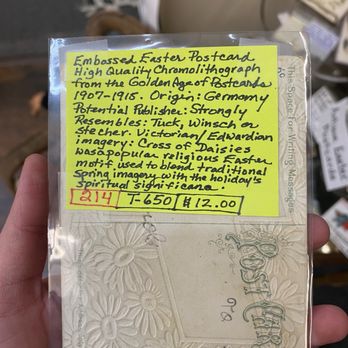 Embossed Easter Postcard
High Quality Chromolithograph
from the Golden Age of Postcards
1907-1915. Origin: Germany
Potential Publisher: Strongly
Resembles: Tuck, Winsch or
Stecher. Victorian/Edwardian
imagery: Cross of Daisies
was a popular religious Easter
motif used to bland traditional
Spring imagery with the holiday's
spiritual significance.
214 T-650 $12.00
This Space for Writing Messages
POST CAR